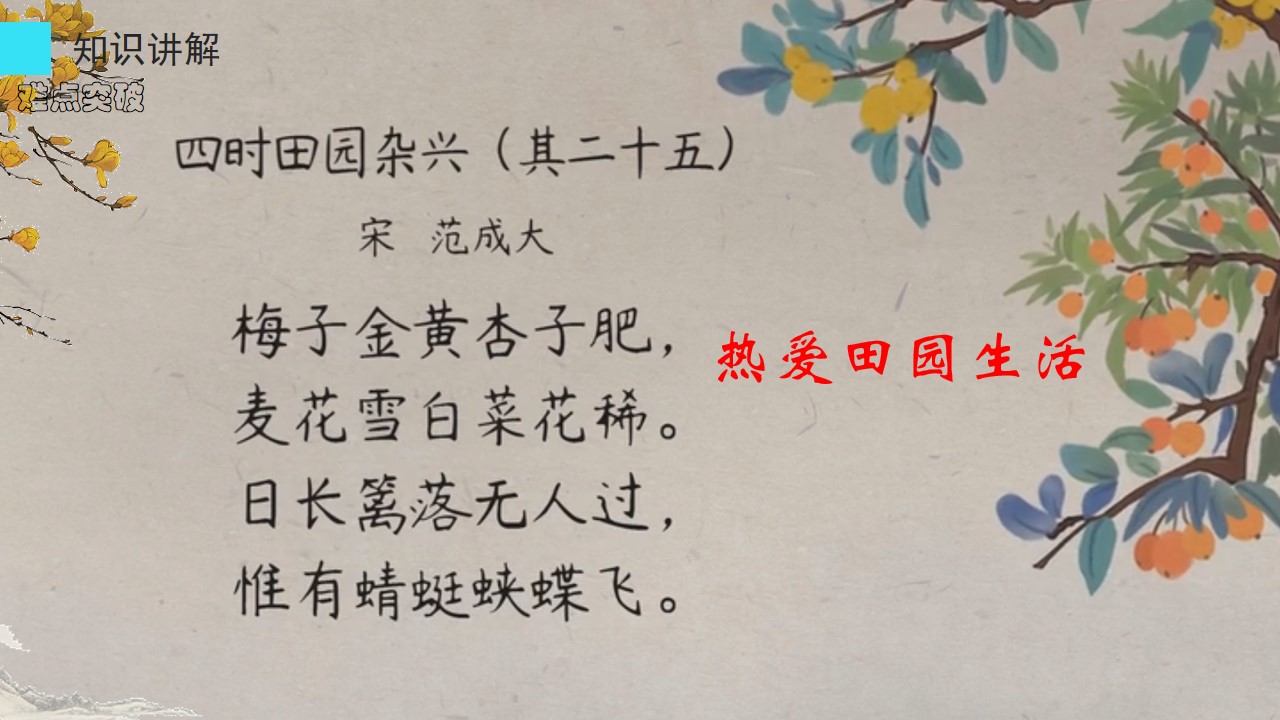 知识讲解
难点突破
四时田园杂兴（其二十五）
宋 范成大
梅子金黄杏子肥，
热爱田园生活
麦花雪白菜花稀。
日长篱落无人过，
惟有蜻蜓蛱蝶飞。